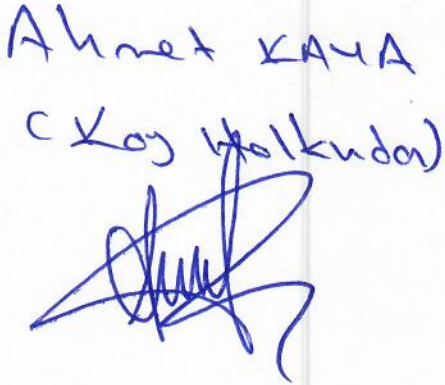 Ahmet KAYA
(Köy Halkından)